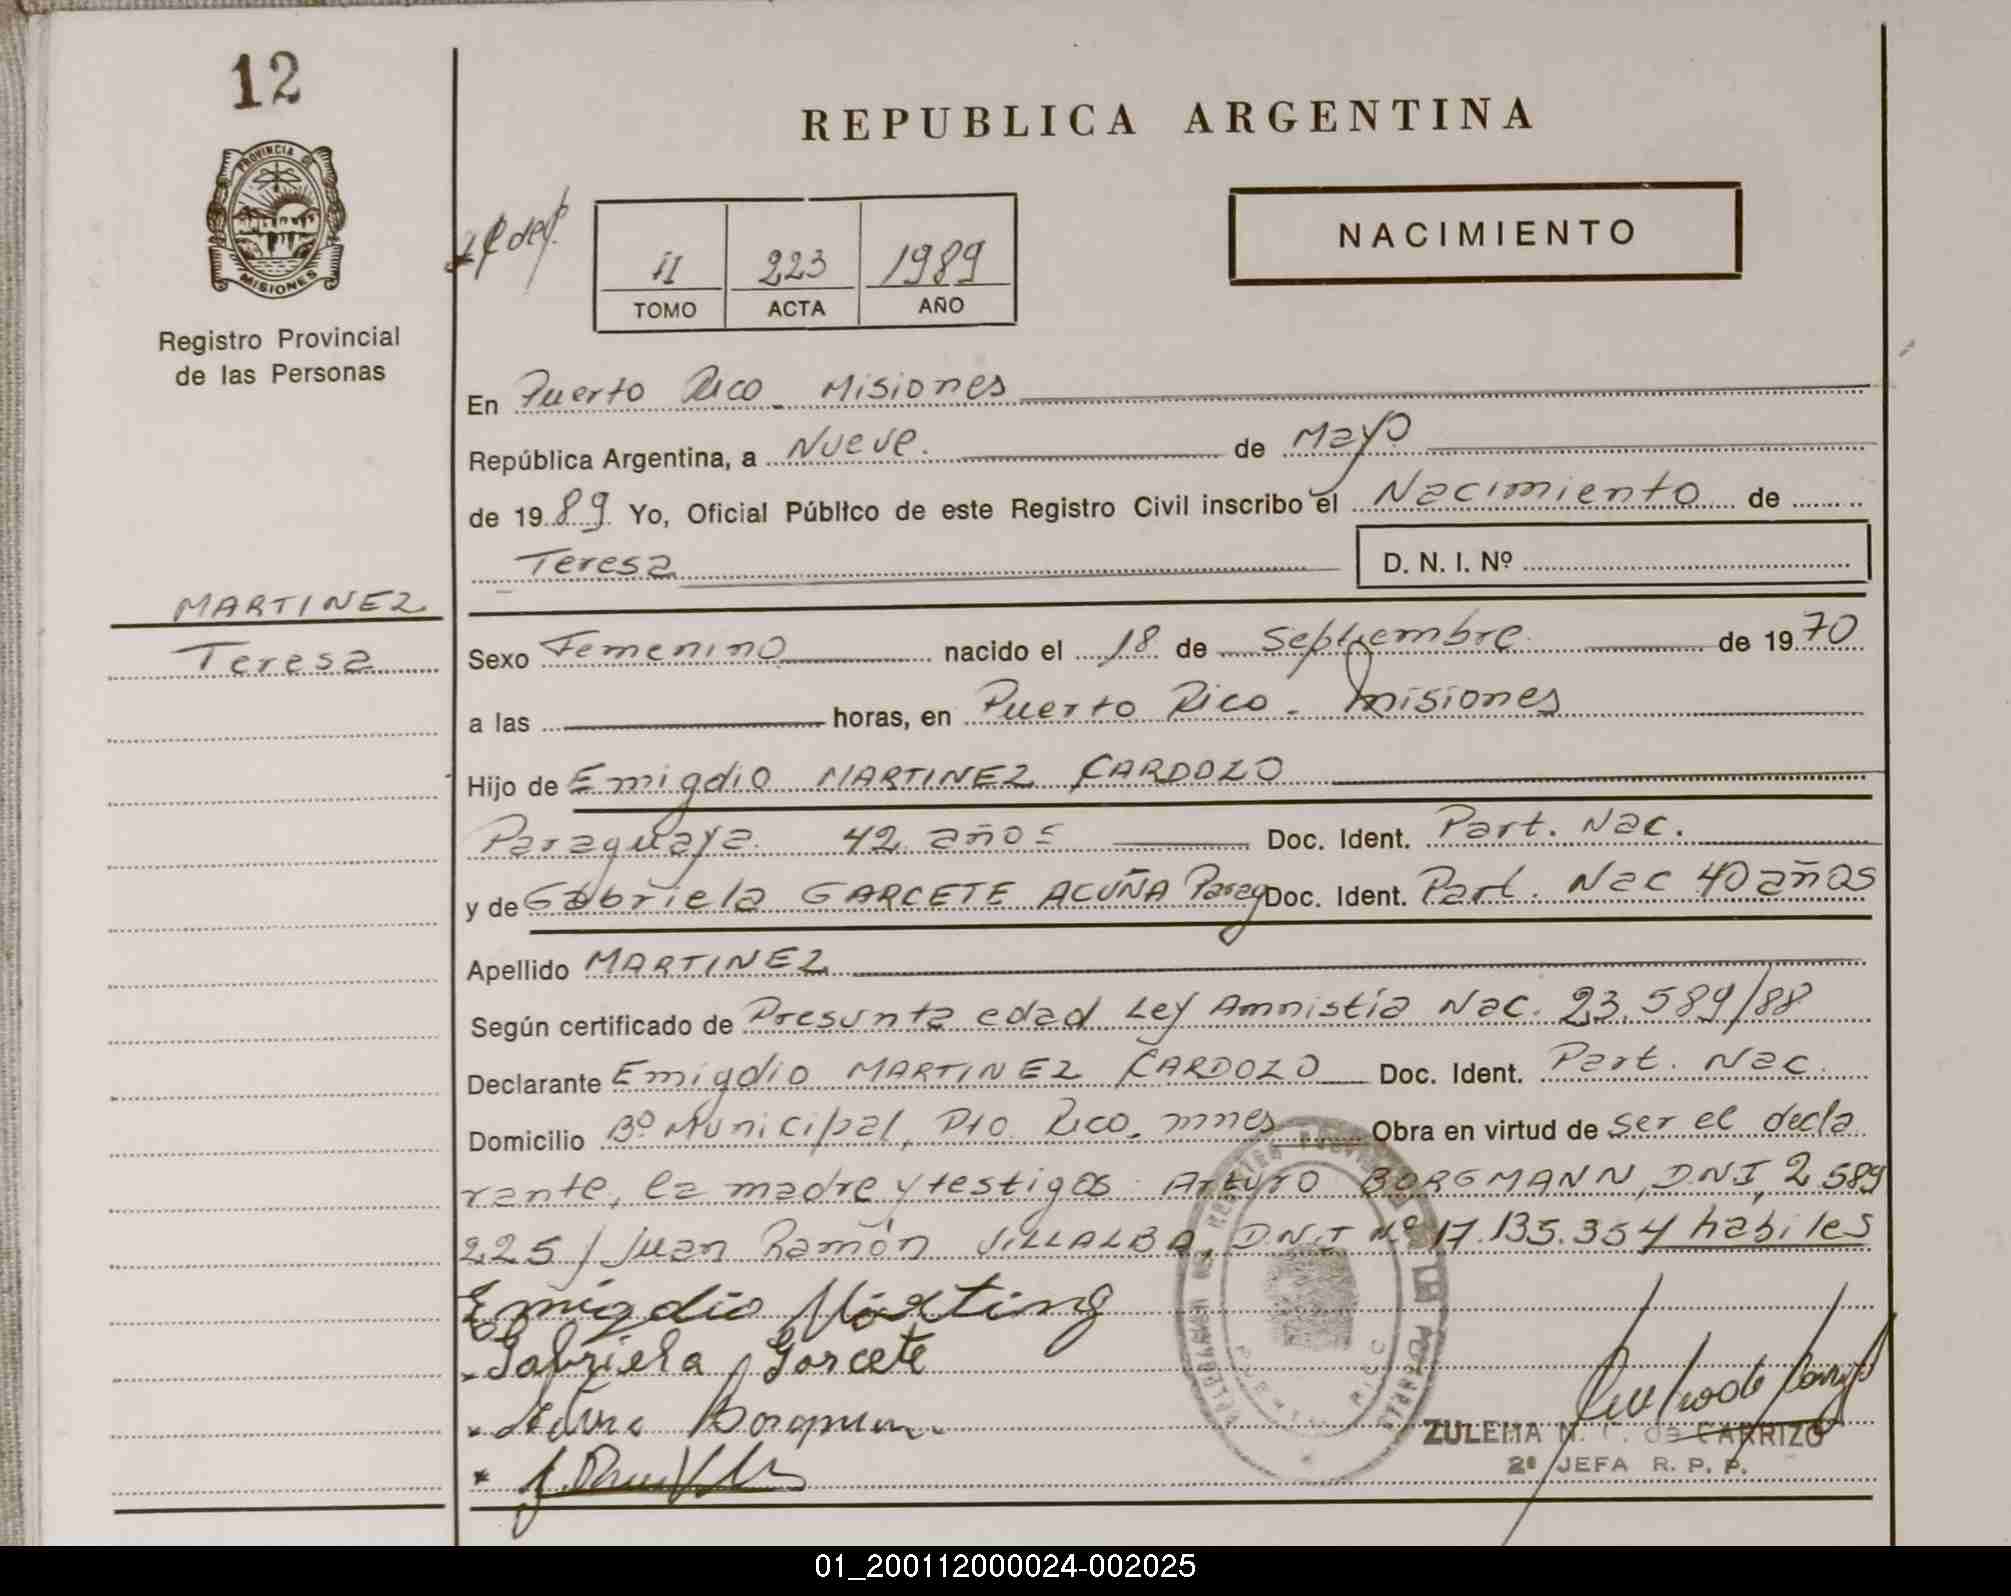 12
REPUBLICA ARGENTINA
PROVINCIA DE
MISIONES
Registro Provincial
de las Personas
II 223 1989
TOMO ACTA AÑO
NACIMIENTO
En Puerto Rico - Misiones
República Argentina, a Nueve. de Mayo
de 1989 Yo, Oficial Público de este Registro Civil inscribo el Nacimiento de
Teresa D. N. I. Nº
MARTINEZ
Teresa
Sexo Femenino nacido el 18 de Septiembre de 1970
a las horas, en Puerto Rico - Misiones
Hijo de Emigdio MARTINEZ CARDOZO
Paraguaya 42 años Doc. Ident. Part. Nac.
y de Gabriela GARCETE ACUÑA Parag Doc. Ident. Part. Nac 40 años
Apellido MARTINEZ
Según certificado de Presunta edad Ley Amnistía Nac. 23.589/88
Declarante Emigdio MARTINEZ CARDOZO Doc. Ident. Part. Nac.
Domicilio Bº Municipal, Pto Rico, mnes Obra en virtud de ser el decla
rante, la madre y testigos: Arturo BORGMANN, D.N.I, 2 589
225/ Juan Ramón VILLALBA, D.N.I Nº 17.135.354 habiles
Emigdio Martinez
Gabriela Garcete
PUERTO RICO
ZULEMA N. de CARRIZO
2ª JEFA R. P. P.
01_200112000024-002025